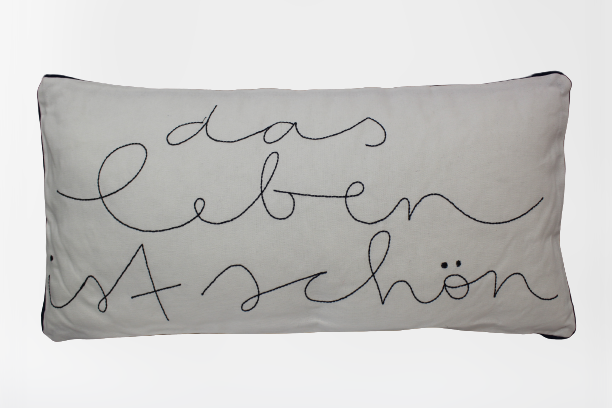 das
leben
ist schön